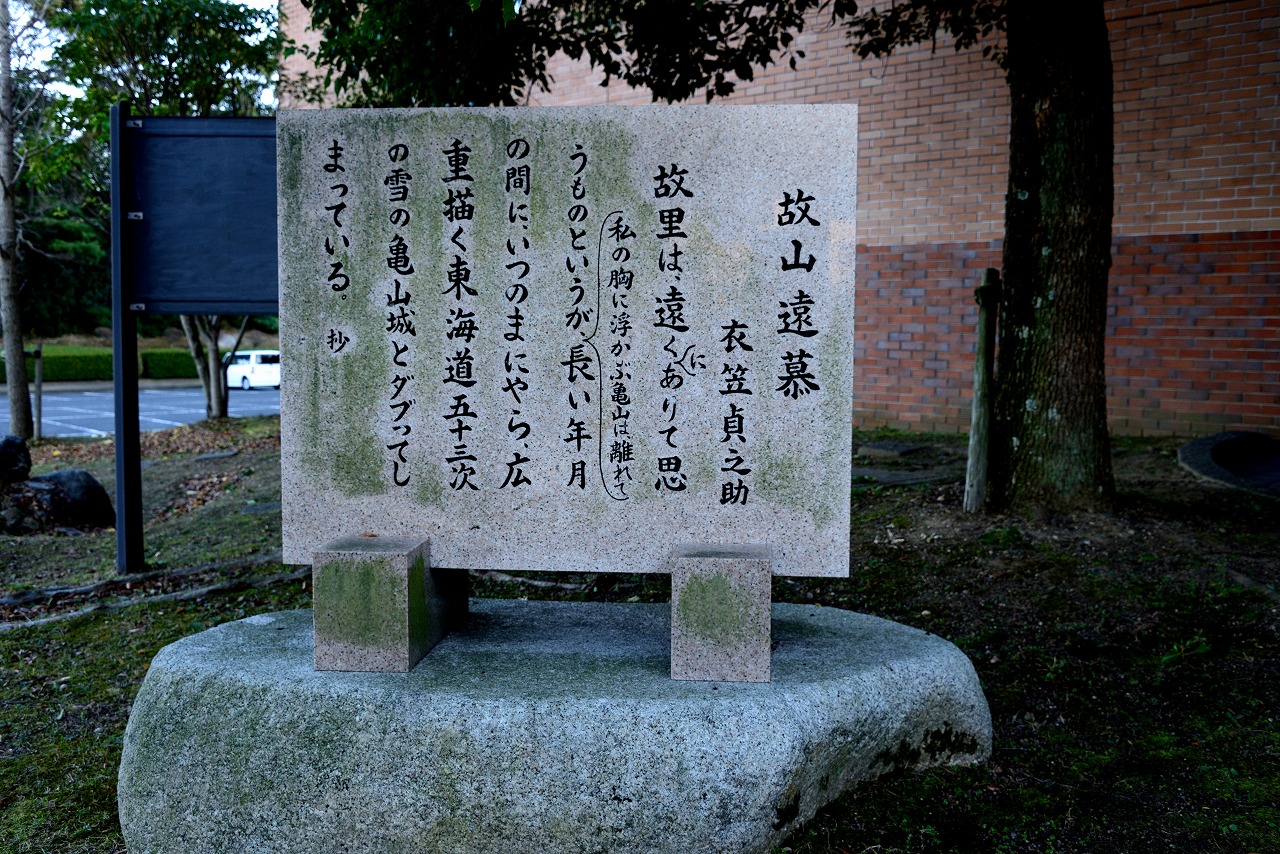 故山遠慕
衣笠貞之助
故里は、遠くありて思
に
うものというが、長い年月
私の胸に浮かぶ亀山は離れて
の間に、いつのまにやら、広
重描く東海道五十三次
の雪の亀山城とダブってし
まっている。 抄